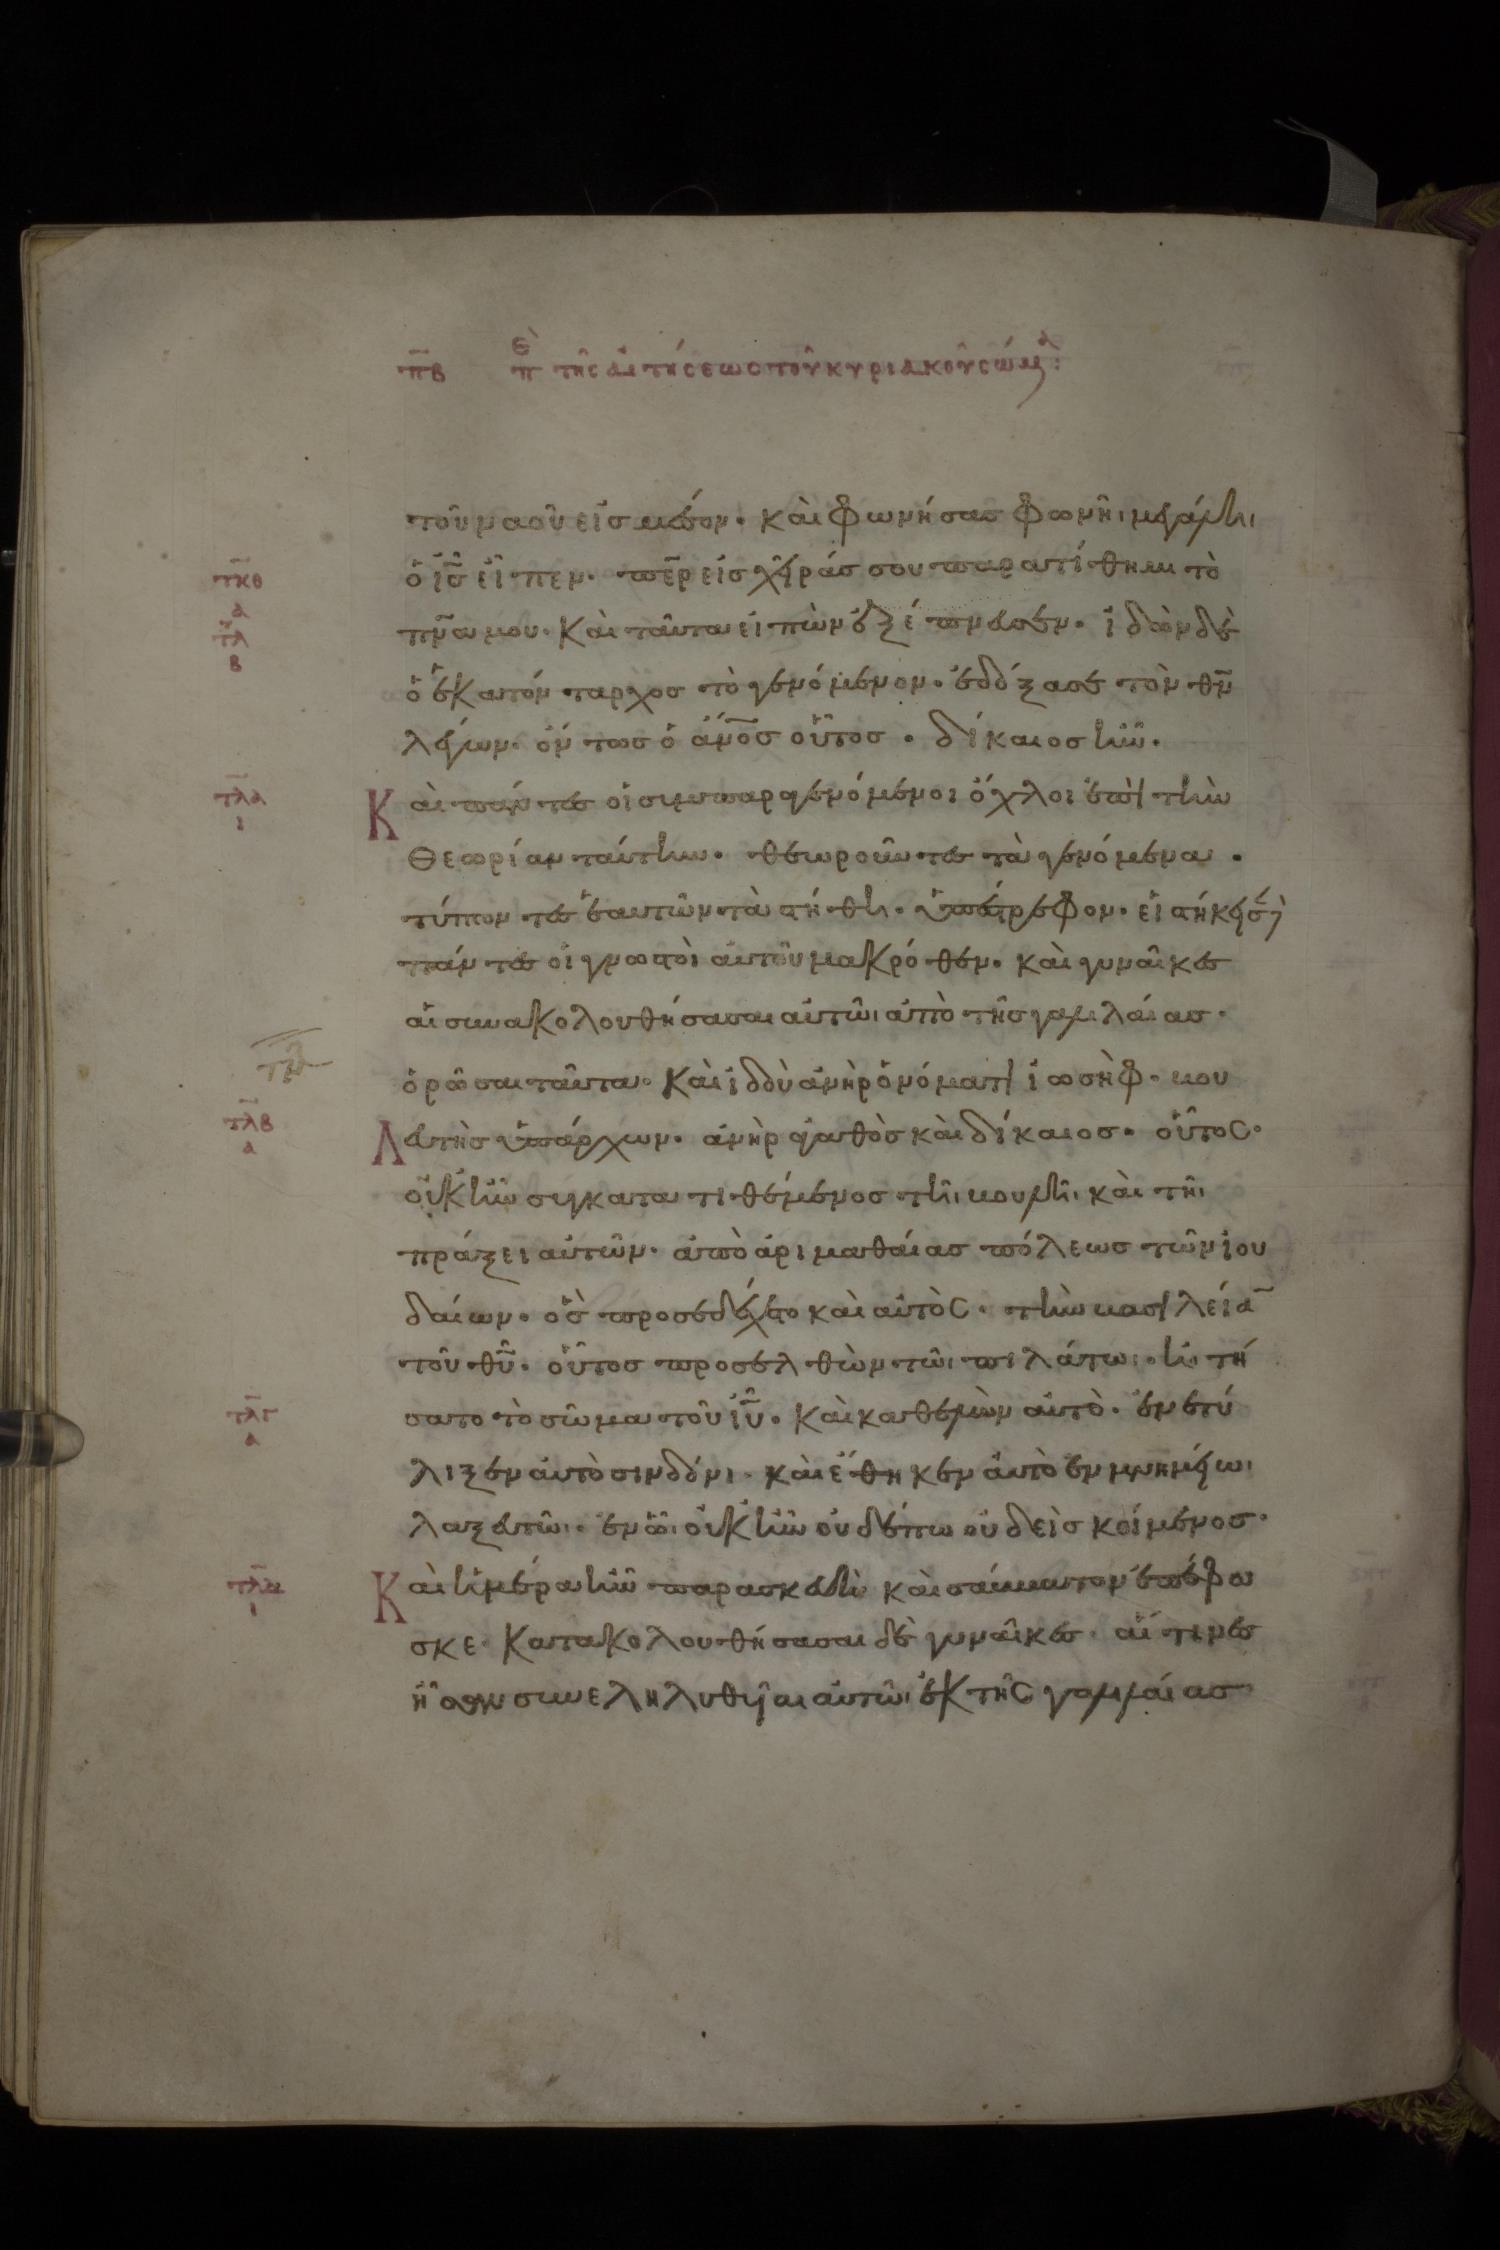 π̅β̅ ἐπ τῆς αἰτήσεως τοῦ κυριακοῦ σώμα:
τοῦ ναοῦ εἰσ μέσον. καὶ φωνήσασ φωνῆι μεγάληι
τ̅κ̅θ̅ ὁ ἰ̅σ̅ εἶπεν. περ εἰσ χεῖράσ σου παρατίθημι τὸ
α
τ̅λ̅ π̅ν̅α̅ μου. καὶ ταῦτα εἰπὼν ἐξέπνευσεν. ἰδὼν δὲ
β
ὁ ἑκατόνταρχοσ τὸ γενόμενον. ἐδόξασε τὸν θ̅ν̅
λέγων. ὄντωσ ὁ ἄ̅ν̅ο̅σ̅ οὗτοσ. δίκαιοσ ἦν.
τ̅λ̅α̅ Καὶ πάντεσ οἱ συμπαργενόμενοι ὄχλοι ἐπὶ τὴν
ι
θεωρίαν ταύτην. θεωροῦντεσ τὰ γενόμενα.
τύπτοντεσ ἑαυτῶν τὰ στήθη. ὑπέστρεφον. εἱστήκεισ
πάντεσ οἱ γνωστοὶ αὐτοῦ μακρόθεν. καὶ γυναῖκεσ
αἱ συνακολουθήσασαι αὐτῶι ἀπὸ τῆσ γαλιλαίασ.
ὁρῶσαι ταῦτα. καὶ ἰδοὺ ἀνὴρ ὀνόματι ἰωσὴφ. βου
τ̅λ̅β̅ Λευτὴσ ὑπάρχων. ἀνὴρ ἀγαθὸσ καὶ δίκαιοσ. οὗτος.
α
οὐκ ἦν συγκατατιθέμενοσ τῆι βουλῆι καὶ τῆι
πράξει αὐτῶν. ἀπὸ ἀριμαθαίασ πόλεωσ τῶν ἰου
δαίων. ὃσ προσεδέχετο καὶ αὐτὸς. τὴν βασιλεία̅
τοῦ θ̅υ̅. οὗτοσ προσελθὼν τῶι πιλάτωι. ἠιτή
τ̅λ̅γ̅ σατο τὸ σῶμα τοῦ ἰ̅υ̅. καὶ καθελὼν αὐτὸ. ἐνετύ
α
λιξεν αὐτὸ σινδόνι. καὶ ἔθηκεν αὐτὸ ἐν μνημείωι
λαξευτῶι. ἐν ὧι οὐκ ἦν οὐδέπω οὐδεὶσ κείμενοσ.
τ̅λ̅δ̅ Καὶ ἡμέρα ἦν παρασκευὴ καὶ σάββατον ἐπέφω
ι
σκε. κατακολουθήσασαι δὲ γυναῖκεσ. αἵτινεσ
ἦσαν συνεληλυθυῖαι αὐτῶι ἐκ τῆς γαλιλαίασ